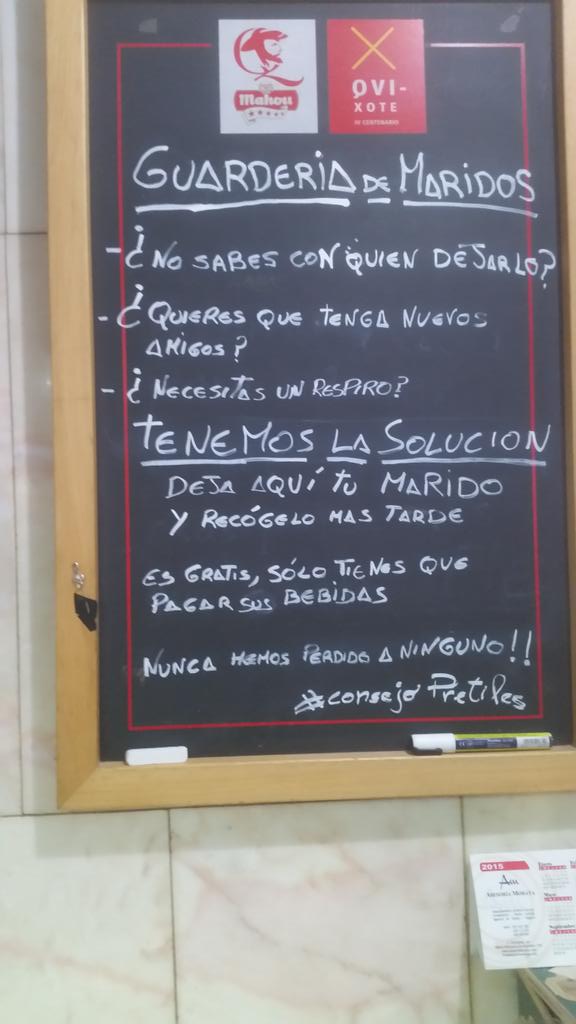 Mahou
QVI-
XOTE
IV CENTENARIO
GUARDERIA DE MARIDOS
- ¿NO SABES CON QUIEN DEJARLO?
- ¿QUIERES QUE TENGA NUEVOS
AMIGOS?
- ¿NECESITAS UN RESPIRO?
TENEMOS LA SOLUCION
DEJA AQUÍ TU MARIDO
Y RECÓGELO MAS TARDE
ES GRATIS, SÓLO TIENES QUE
PAGAR SUS BEBIDAS
NUNCA HEMOS PERDIDO A NINGUNO!!
#consejo Pretiles
2015
Am